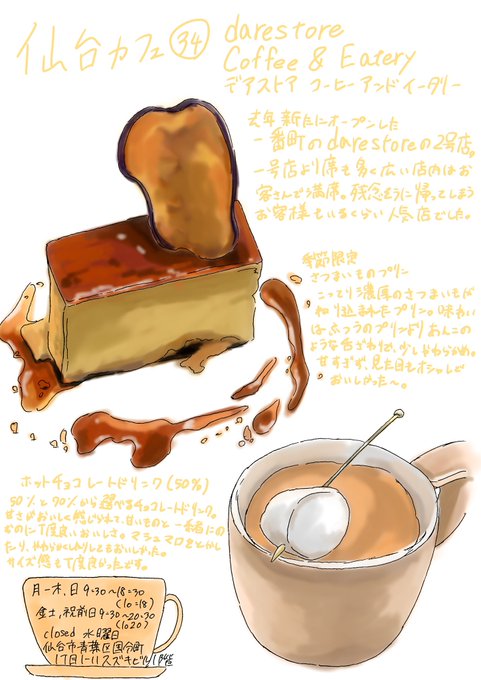 仙台カフェ㉞
darestore
Coffee & Eatery
デアストア コーヒーアンドイータリー
去年新たにオープンした
一番町のdarestoreの2号店。
一号店より席も多く広い店内はお
客さんで満席。残念そうに帰ってしまう
お客様もいるくらい人気店でした。
季節限定
さつまいものプリン
こってり濃厚のさつまいもが
練り込まれたプリン。味わい
はふつうのプリンよりあんこの
ような舌ざわりか、少しやわらかめ。
甘すぎず、見た目もオシャレで
おいしかった〜。
ホットチョコレートドリンク(50%)
50%と70%から選べるチョコレートドリンク。
甘さがおいしく感じられて、甘いものと一緒に
なのに丁度良いおいしさ。マシュマロをとかし
たり、やわらかくしたりしてもおいしかった。
サイズ感も丁度良かったです。
月-木,日 9:30~18:30
(lo=18)
金土,祝前日9:30~20:30
(lo20)
closed 水曜日
仙台市青葉区国分町
1丁目1-11スズキビル1階